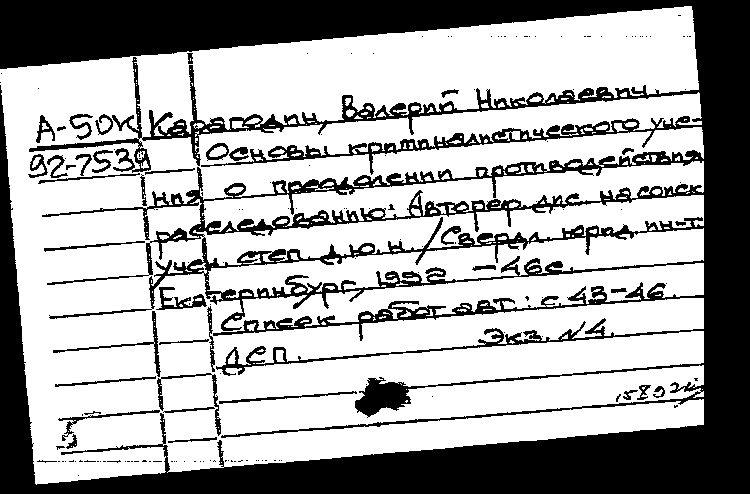 А-50К Карагодин, Валерий Николаевич.
92-7539 Основы криминалистического уче-
ния о преодолении противодействия
расследованию: Автореф. дис. на соиск
учен. степ. д.ю.н. / Свердл. юрид. ин-т.
Екатеринбург, 1992. — 46с.
Список работ авт.: с. 43-46.
ДСП. Экз. N4.
5